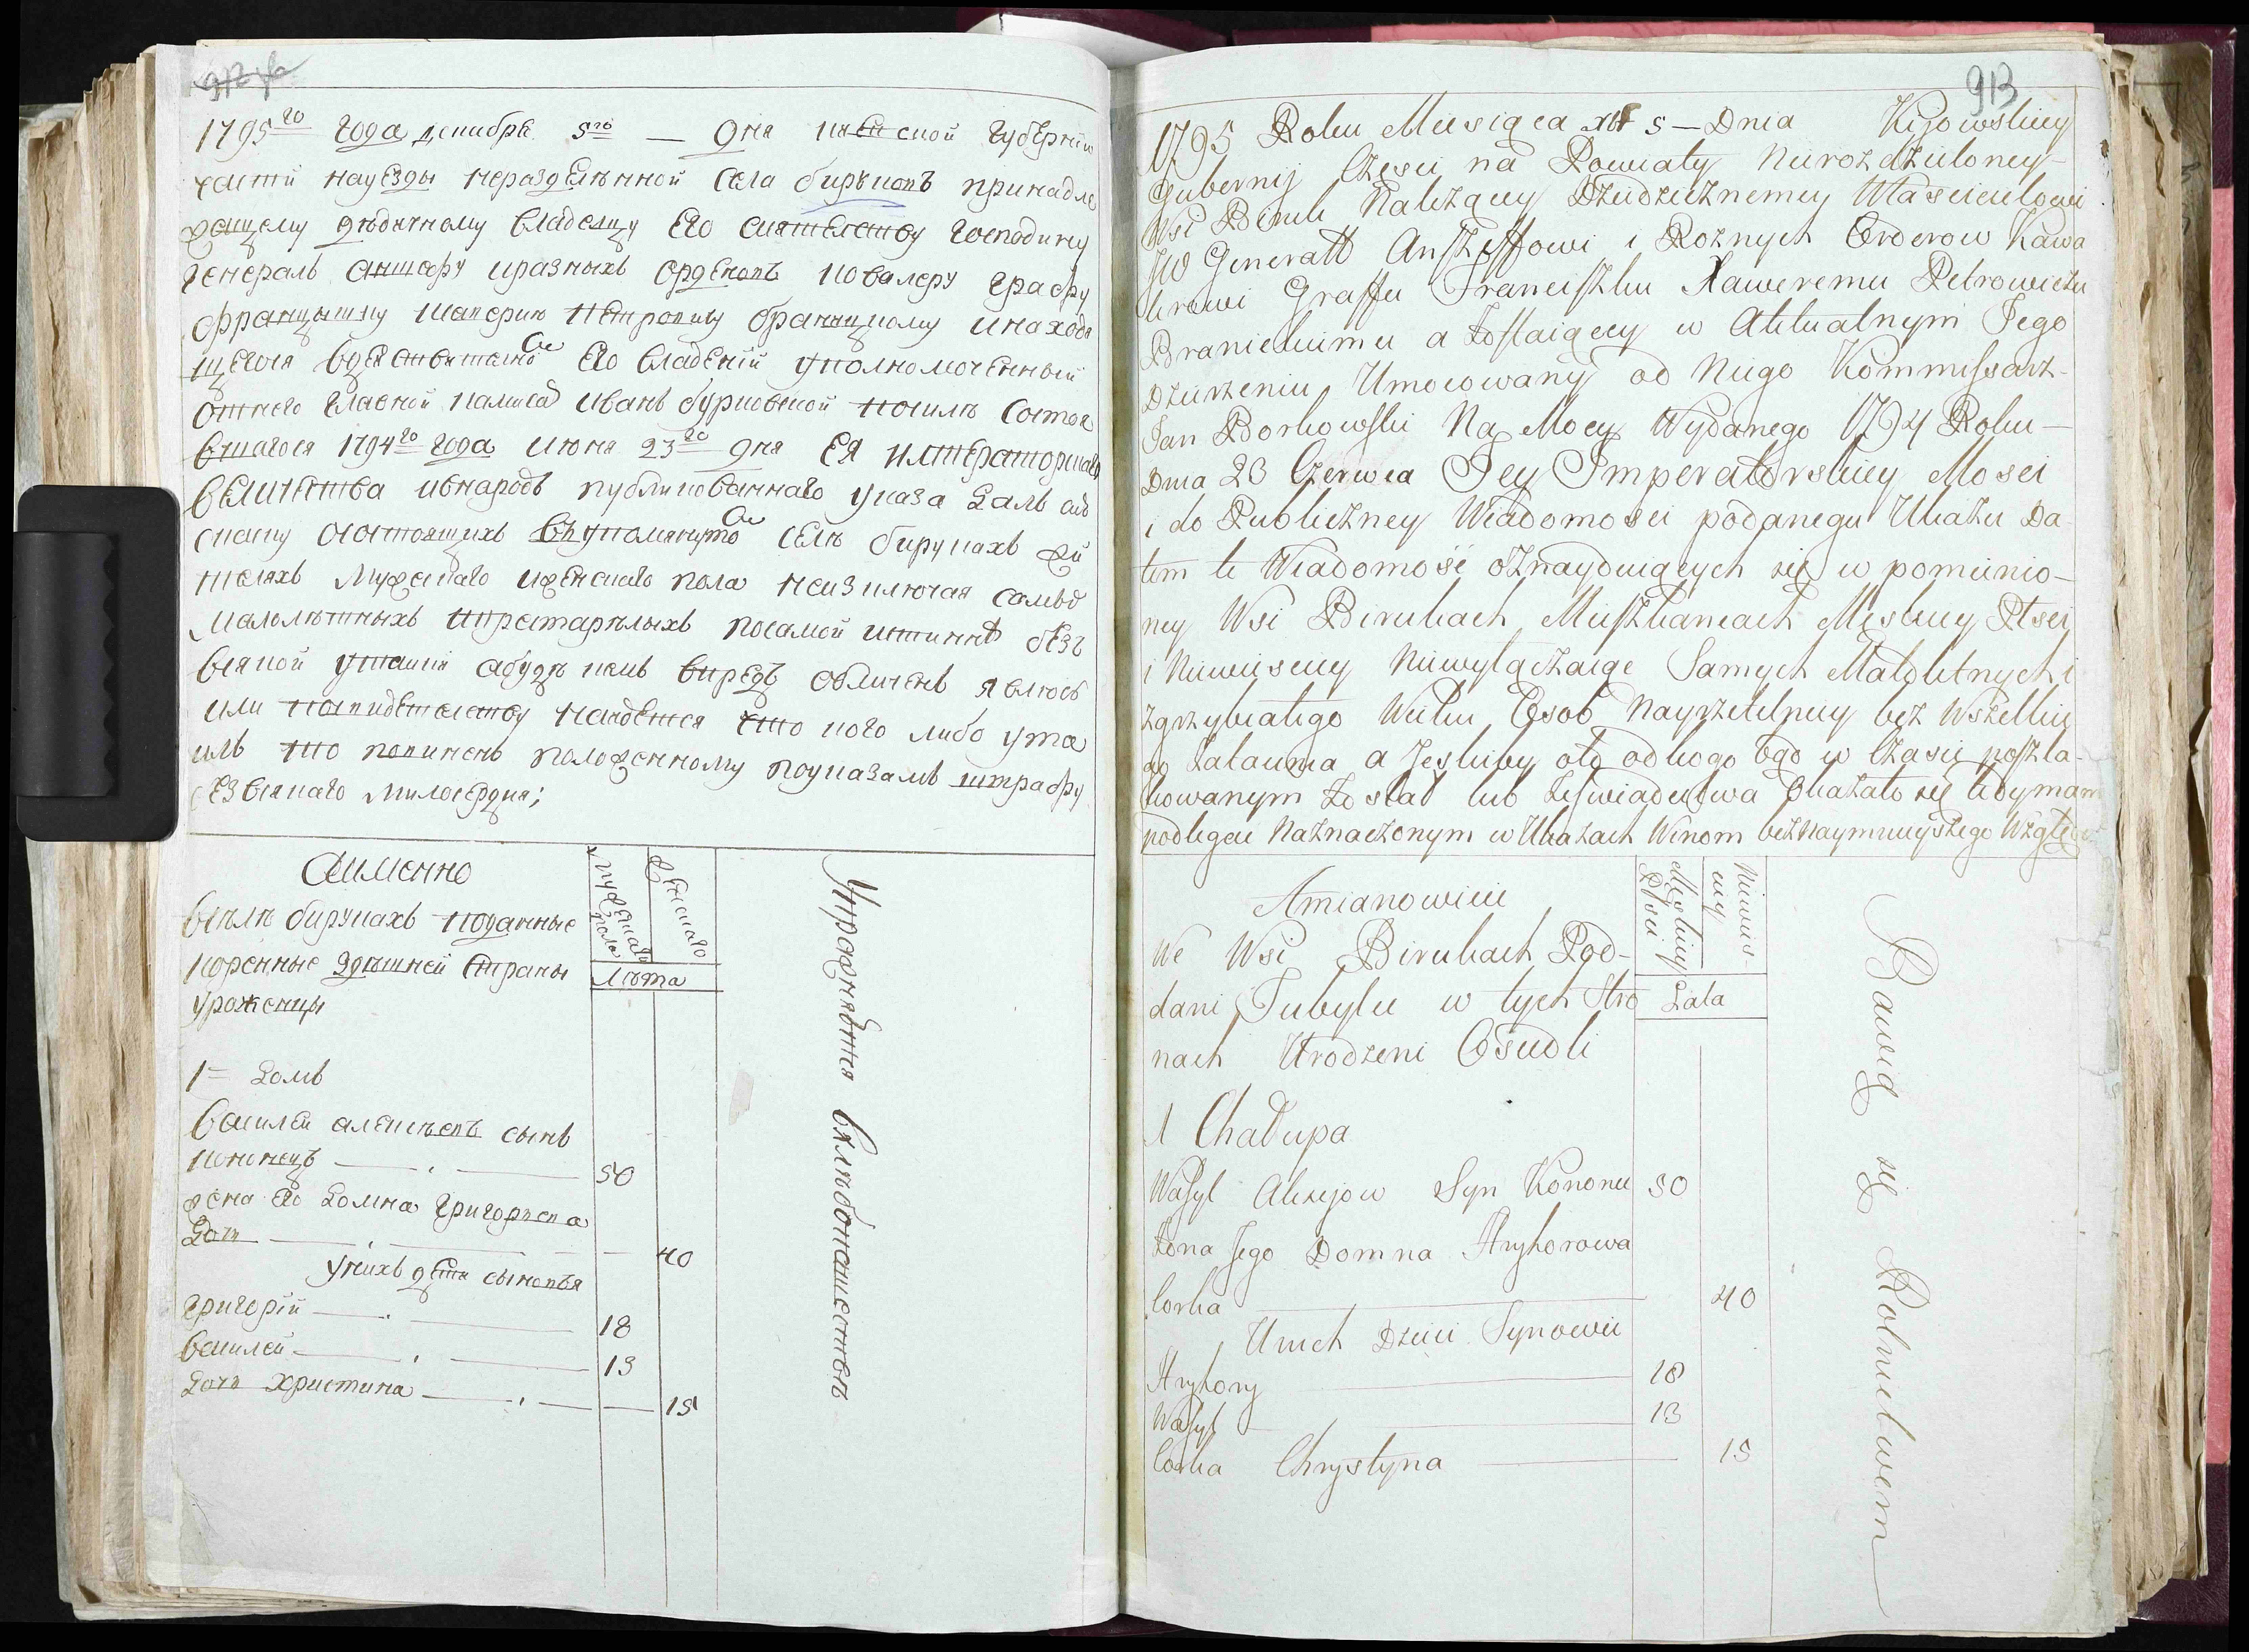 1795го года декабря 5го — дня киевской губернии
части науезды неразделенной села бирюковъ принадле
жащему дѣдичному владелцу Его сиятелству господину
генералъ аншефу иразныхъ орденовъ ковалеру графу
францышку Ивановичу
щегося вдействителномъ Его владений уполномоченный
отнего главной комисаръ иванъ бурковской посилѣ состоя
вшагося 1794го года июня 23го дня Ея императорскаго
величества ивнародъ публикованнаго указа далъ сию
скаску осостоящихъ въупомянутомъ селѣ бирукахъ жи
теляхъ мужескаго иженскаго пола неизключая самыхъ
малолѣтныхъ ипрестарѣлыхъ посамой истиннѣ безъ
всякой утайки абуде кемъ впредъ обличенъ явлюсь
или посвидетелству найдется что кого либо ута
илъ то повиненъ положенному поуказамъ штрафу
безвсякаго милосердия;
Аименно
мужескаго пола
женскаго
лѣта
всѣлѣ бирукахъ поданные
коренные здѣшней страны
уроженцы
1= Домъ
василей алексѣевъ сынъ
кононецъ — 50
жена его домна григорьева
дочь — 40
унихъ дети сыновья
григорий — 18
василей — 13
дочь христина — 15
Упражняются вхлѣбопашестве
913
1795 Roku Miesiąca xbr 5 — Dnia Kijowskiey
Gubernij Częsci na Powiaty Nierozdzieloney
Wsi Biruk Nalezącey Dziedzicznemu Włascicielowi
JW Generałł Anszeffowi i Roznych Orderow Kawa
lerowi Graffu Franciszku Xaweremu Petrowiczu
Branickiemu a Zostaiącey w Aktualnym Jego
Dzierzeniu, Umocowany od Niego Kommissarz
Jan Borkowski Na Mocy Wydanego 1794 Roku —
Dnia 23 Czerwca Jey Imperatorskiey Mosci
i do Publiczney Wiadomosci podanego Ukazu Da
iem te Wiadomość oznayduiących się w pomienio-
ney Wsi Birukach Mieszkancach Męskiey Płsci
i Niewiesciey Niewyłączaiąc Samych Małoletnych i
zgrzybiałego Wieku Osob Nayrzetelniey bez Wszelkie
go Zataienia a Jesliby oto odkogo bądz w Czasie poszla-
kowanym Został lub zeświadectwa Okazało się tedy mam
podlegać Naznaczonym w Ukazach Winom beznaymnieyszego Względu
Amianowicie
Męskiey Płsci
Niewies-
ciey
Lata
We Wsi Birukach Pod-
dani Tubylcy w tych Stro
nach Urodzeni Osiedli
1 Chałupa
Wasyl Alexejow Syn Kononec 50
Zona Jego Domna Hryhorowa
Corka — 40
Unich Dzieci Synowie
Hryhory — 18
Wasyl — 13
Corka Chrystyna — 15
Bawią się Rolnictwem